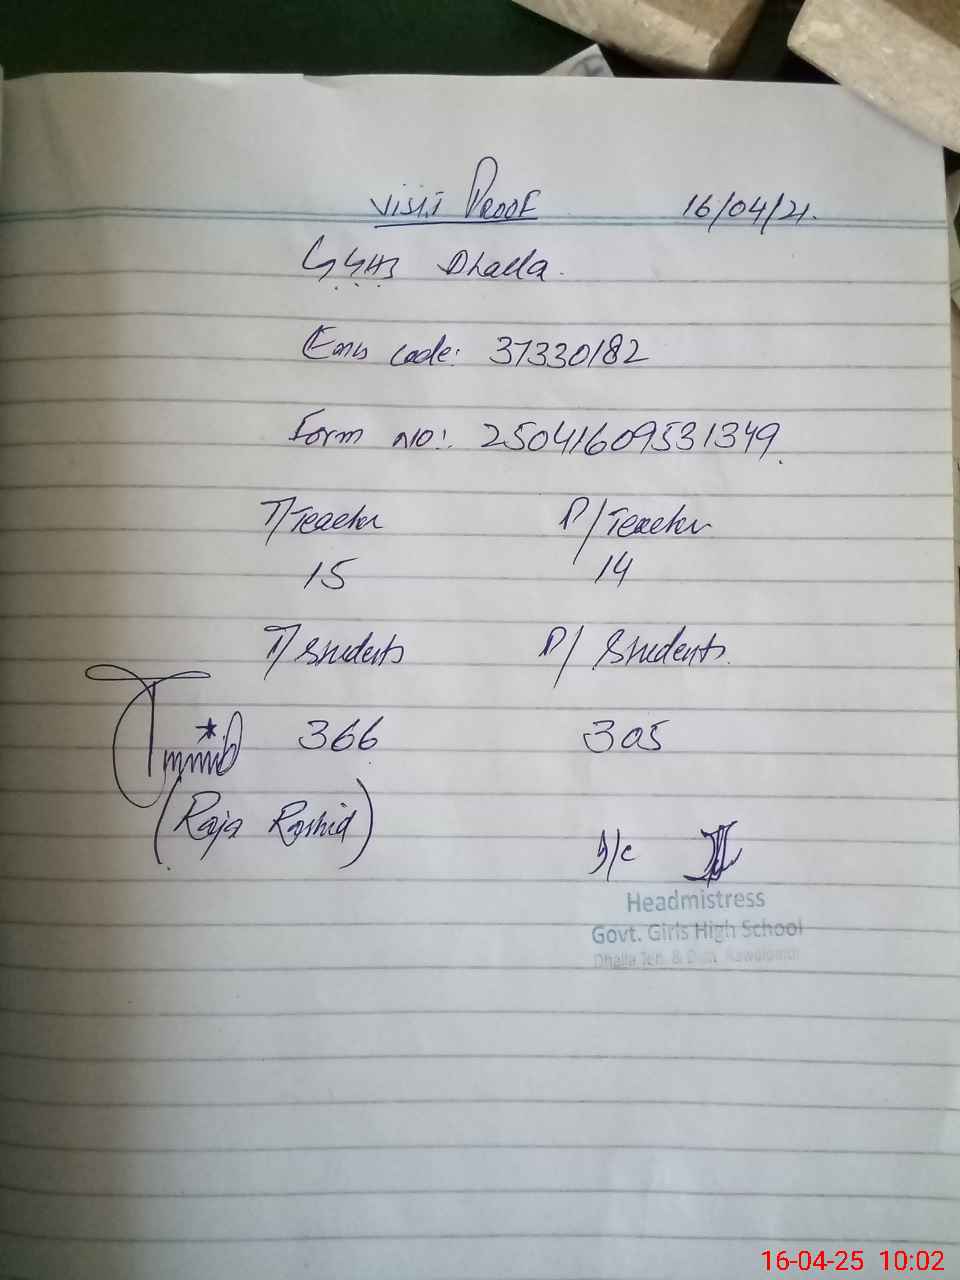 Visit Proof 16/04/21.
GGHS Dhalla.
Emis code: 37330182
Form no: 25041609531349.
T/Teacher P/Teacher
15 14
T/Students P/Students.
366 305
(Raja Rashid)
I/c
Headmistress
Govt. Girls High School
Dhalla Teh. & Distt. Rawalpindi
16-04-25 10:02